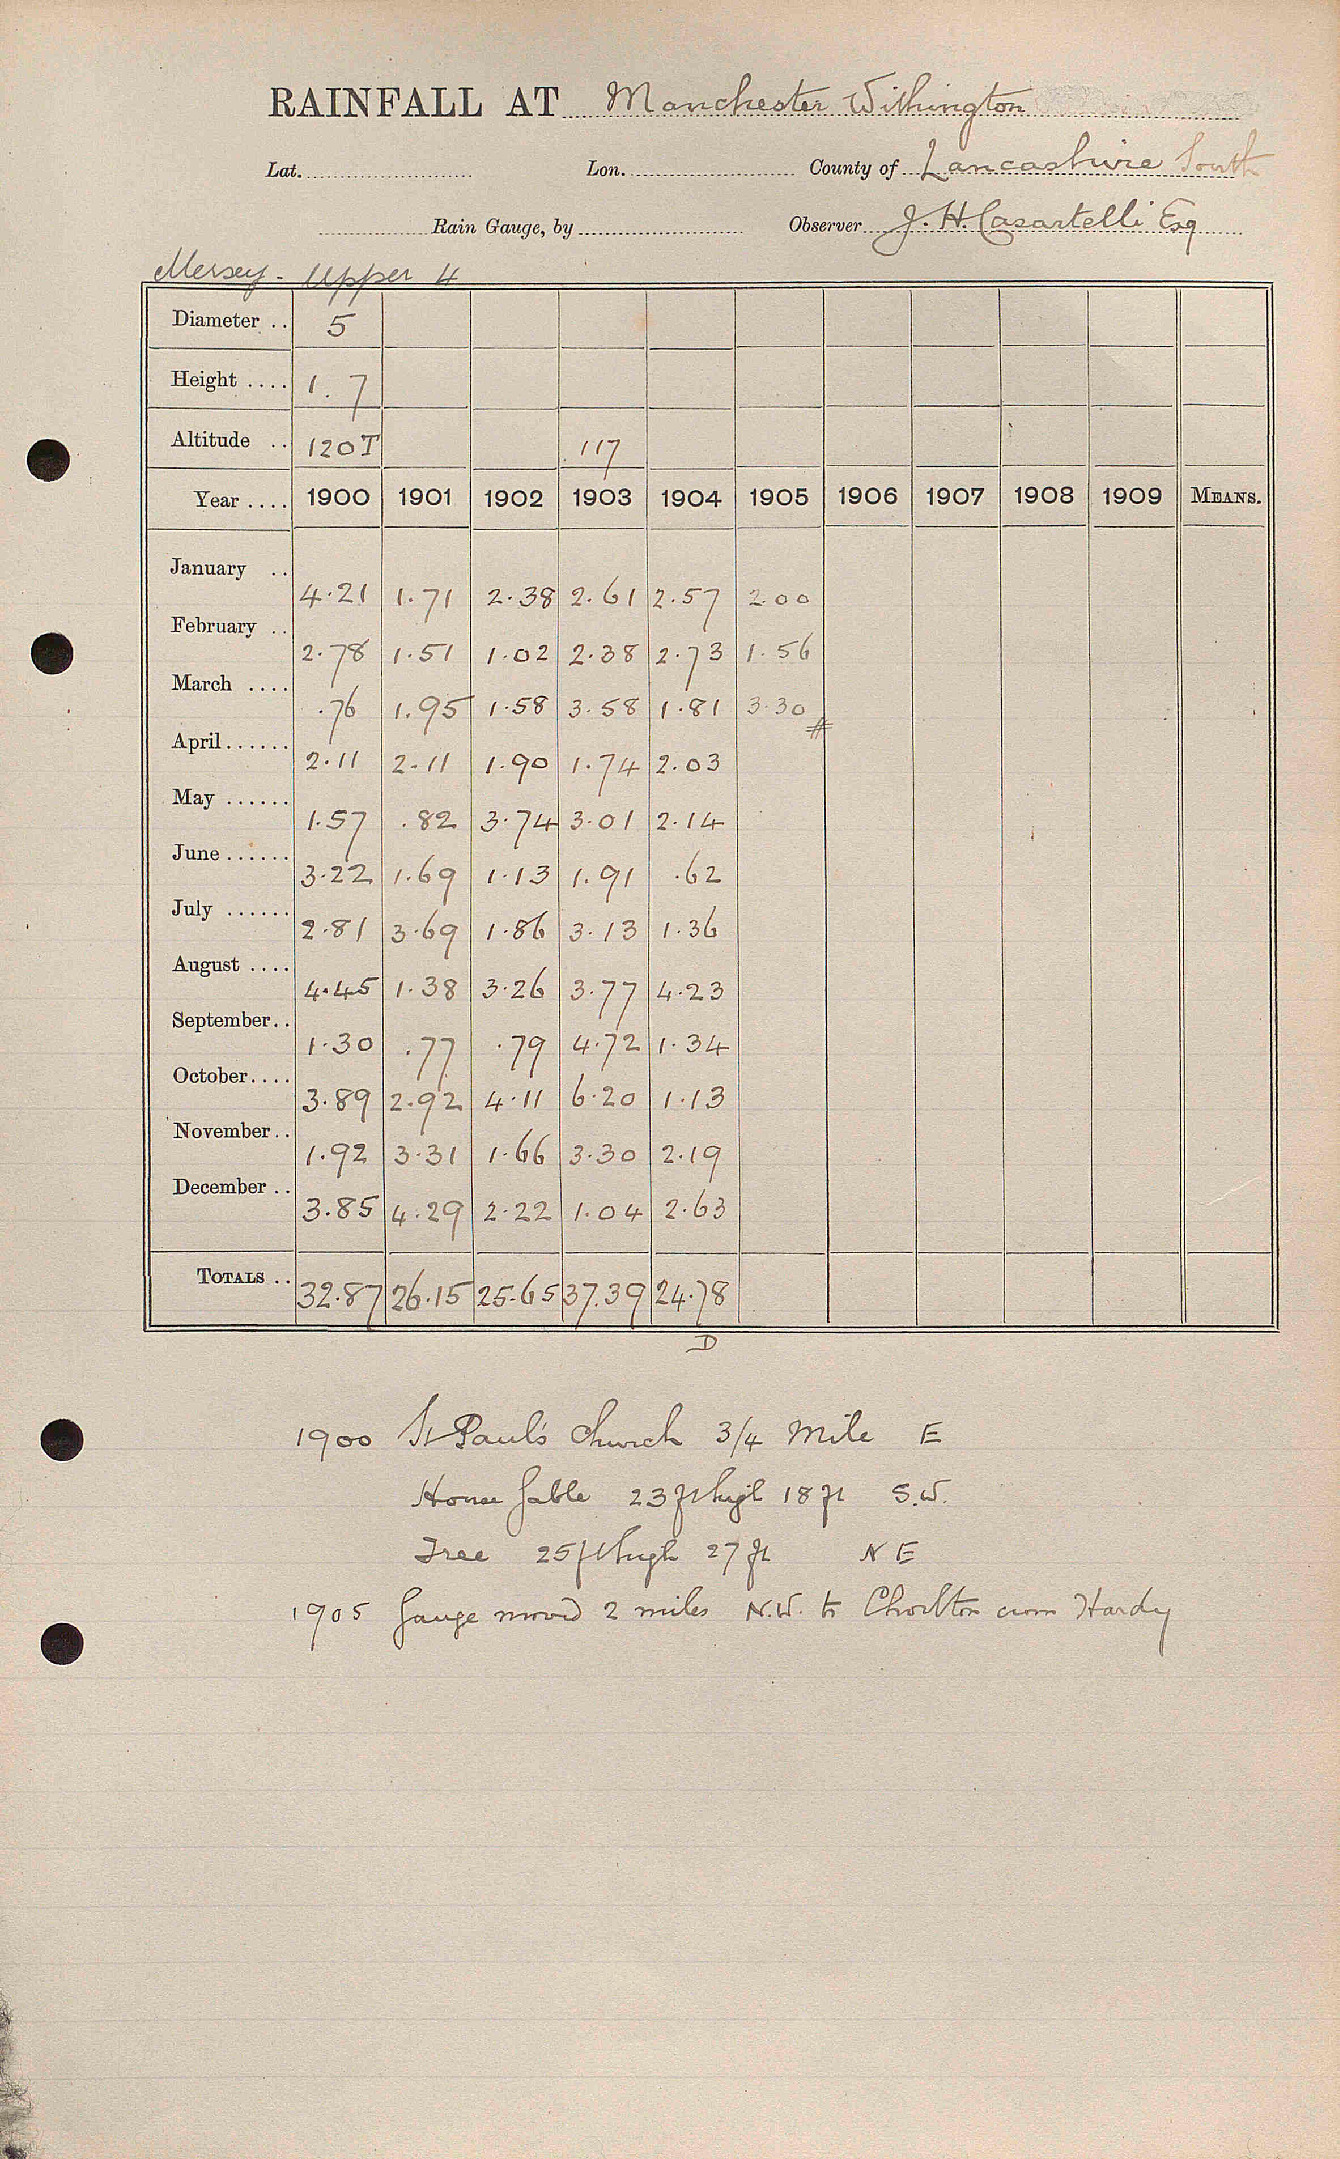 RAINFALL AT Manchester Withington
Lat. Lon. County of Lancashire South
Rain Gauge, by Observer J. H. Casartelli Esq
Mersey - Upper 4
Diameter .. 5
Height .... 1.7
Altitude .. 120T 117
Year .... 1900 1901 1902 1903 1904 1905 1906 1907 1908 1909 MEANS.
January .. 4.21 1.71 2.38 2.61 2.57 2.00
February .. 2.78 1.51 1.02 2.38 2.73 1.56
March .... .76 1.95 1.58 3.58 1.81 3.30 #
April ...... 2.11 2.11 1.90 1.74 2.03
May ...... 1.57 .82 3.74 3.01 2.14
June ...... 3.22 1.69 1.13 1.91 .62
July ...... 2.81 3.69 1.86 3.13 1.36
August .... 4.45 1.38 3.26 3.77 4.23
September.. 1.30 .77 .79 4.72 1.34
October.... 3.89 2.92 4.11 6.20 1.13
November.. 1.92 3.31 1.66 3.30 2.19
December .. 3.85 4.29 2.22 1.04 2.63
TOTALS .. 32.87 26.15 25.65 37.39 24.78
D
1900 St Paul's Church 3/4 Mile E
House Gable 23 ft high 18 ft S.W.
Tree 25 ft high 27 ft N E
1905 Gauge moved 2 miles N.W. to Chorlton cum Hardy